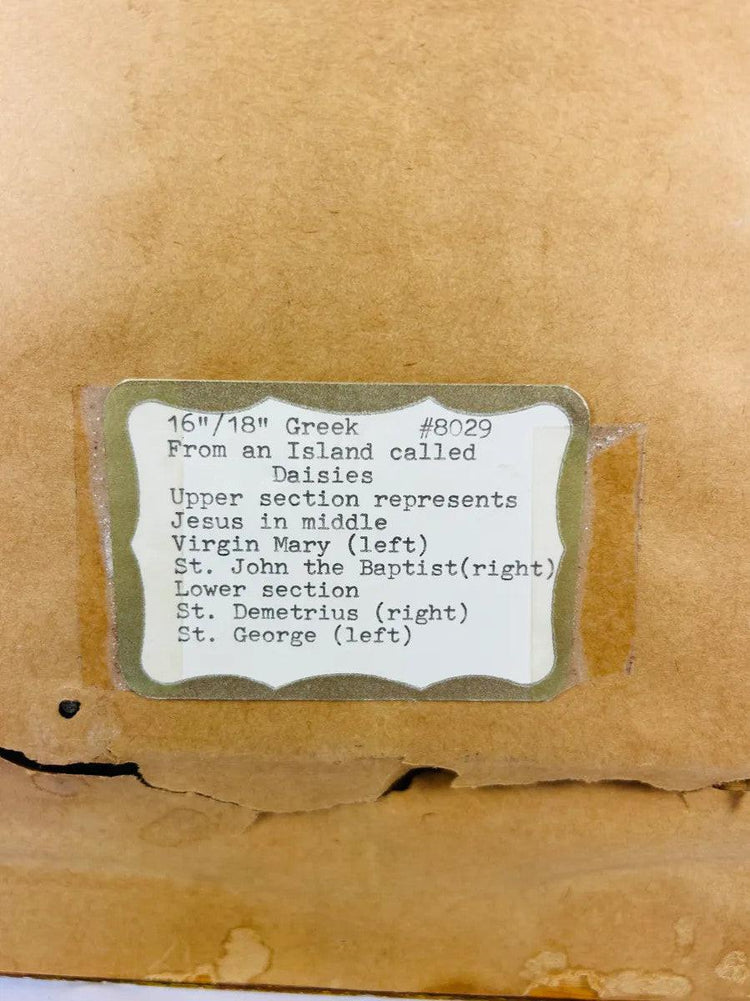 16"/18" Greek #8029
From an Island called
Daisies
Upper section represents
Jesus in middle
Virgin Mary (left)
St. John the Baptist(right)
Lower section
St. Demetrius (right)
St. George (left)